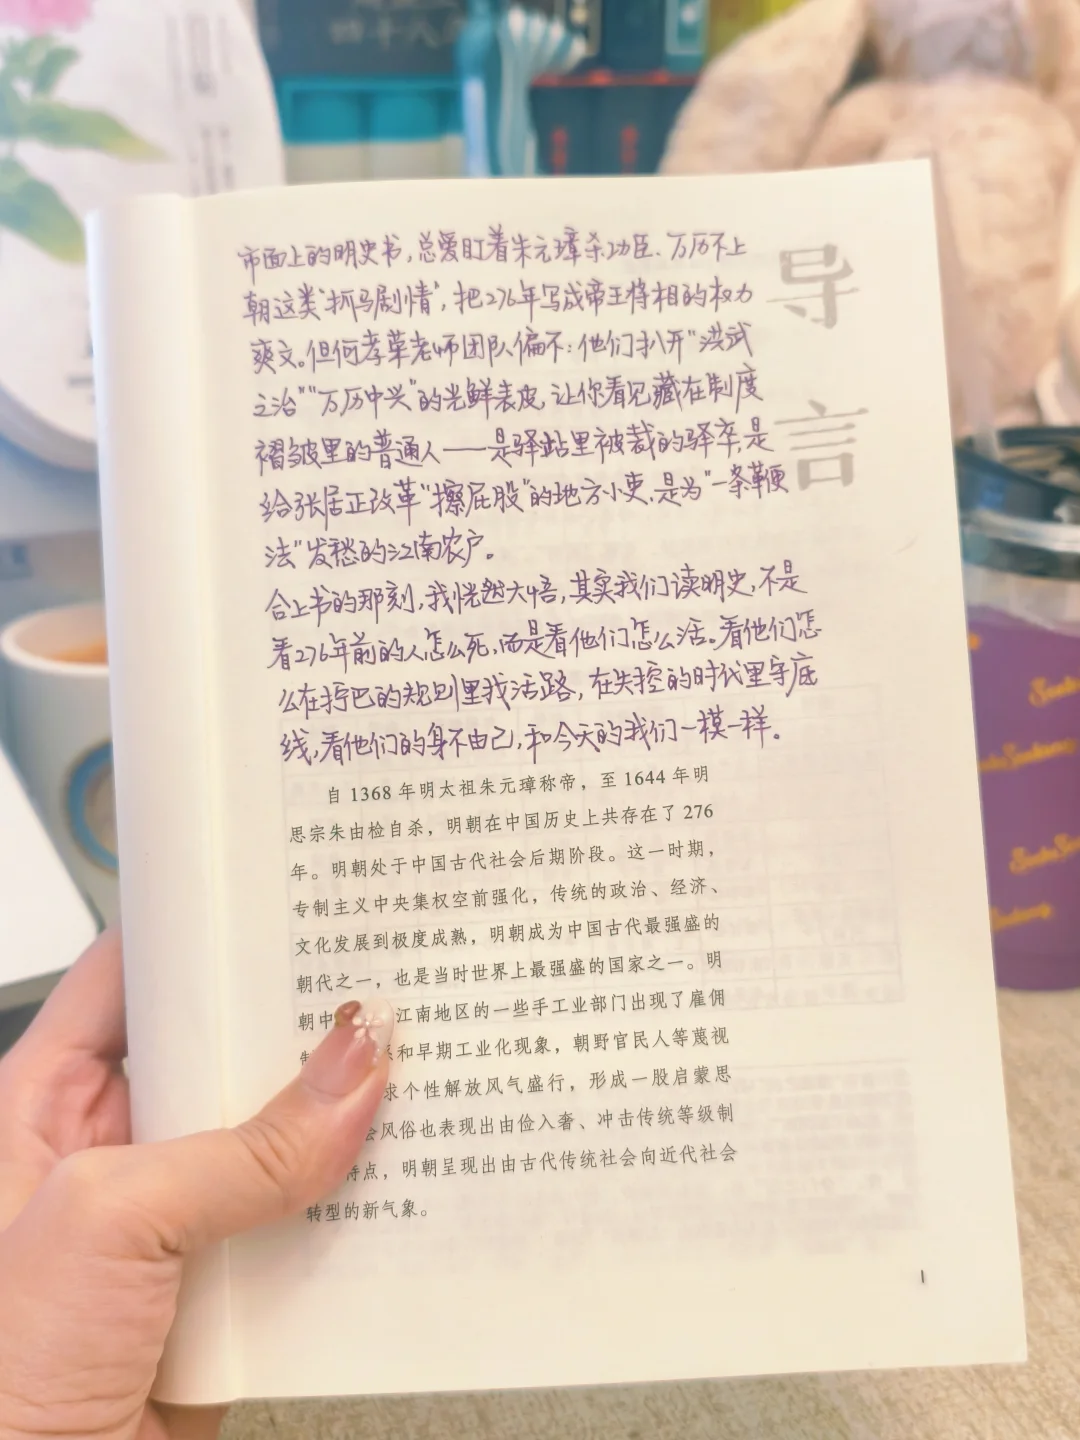 导言
市面上的明史书,总爱盯着朱元璋杀功臣、万历不上
朝这类"抓马剧情",把276年写成帝王将相的权力
爽文。但何孝荣老师团队偏不:他们扒开"洪武
之治""万历中兴"的光鲜表皮,让你看见藏在制度
褶皱里的普通人——是驿站里被裁的驿卒,是
给张居正改革"擦屁股"的地方小吏,是为"一条鞭
法"发愁的江南农户。
合上书的那刻,我恍然大悟,其实我们读明史,不是
看276年前的人怎么死,而是看他们怎么活。看他们怎
么在拧巴的规则里找活路,在失控的时代里守底
线,看他们的身不由己,和今天的我们一模一样。
自 1368 年明太祖朱元璋称帝,至 1644 年明
思宗朱由检自杀,明朝在中国历史上共存在了 276
年。明朝处于中国古代社会后期阶段。这一时期,
专制主义中央集权空前强化,传统的政治、经济、
文化发展到极度成熟,明朝成为中国古代最强盛的
朝代之一,也是当时世界上最强盛的国家之一。明
朝中 江南地区的一些手工业部门出现了雇佣
制 系和早期工业化现象,朝野官民人等蔑视
求个性解放风气盛行,形成一股启蒙思
会风俗也表现出由俭入奢、冲击传统等级制
特点,明朝呈现出由古代传统社会向近代社会
转型的新气象。
1